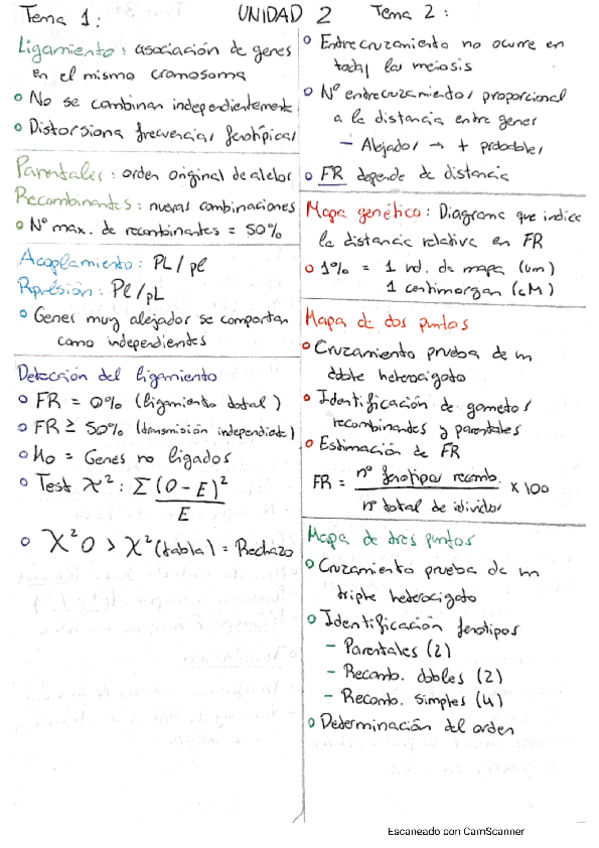 UNIDAD 2
Tema 1:
Ligamiento: asociación de genes
en el mismo cromosoma
o No se combinan independientemente
o Distorsiona frecuencias fenotípicas
Parentales: orden original de alelos
Recombinantes: nuevas combinaciones
o Nº max. de recombinantes = 50%
Acoplamiento: PL / pl
Repulsión: Pl / pL
o Genes muy alejados se comportan
como independientes
Detección del ligamiento
o FR = 0% (ligamiento total)
o FR ≥ 50% (transmisión independiente)
o Ho = Genes no ligados
o Test χ²: Σ (O-E)²
E
o χ²O > χ²(tabla) = Rechazo
Tema 2:
o Entrecruzamiento no ocurre en
todas las meiosis
o Nº entrecruzamientos proporcional
a la distancia entre genes
- Alejados → + probables
o FR depende de distancia
Mapa genético: Diagrama que indica
la distancia relativa en FR
o 1% = 1 ud. de mapa (um)
1 centimorgan (cM)
Mapa de dos puntos
o Cruzamiento prueba de un
doble heterocigoto
o Identificación de gametos
recombinantes y parentales
o Estimación de FR
FR = nº fenotipos recomb. x 100
nº total de individuos
Mapa de tres puntos
o Cruzamiento prueba de un
triple heterocigoto
o Identificación fenotipos
- Parentales (2)
- Recomb. dobles (2)
- Recomb. simples (4)
o Determinación del orden
Escaneado con CamScanner